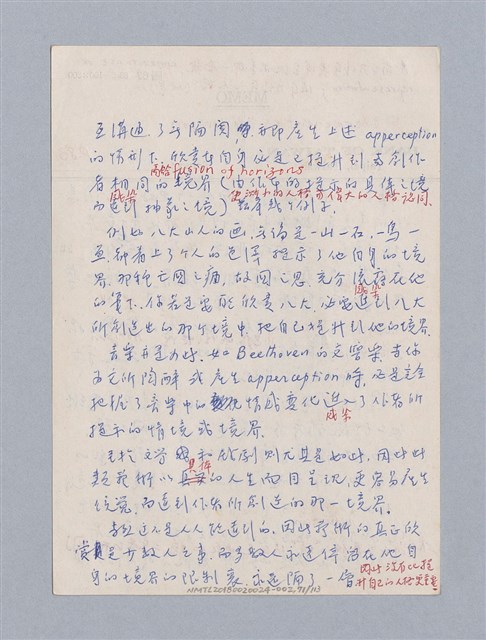 互溝通了無隔閡,亦即產生上述 apperception
的情形下,欣賞者自身必是已提升到與創作
高於 fusion of horizons
者相同的境界(由詩中的提示的具体之境
感染
而達到抽象之境)。茲舉幾个例子。
例如八大山人的画,無論是一山一石,一鳥一
魚,都着上了个人的色澤,提示了他自身的境
界,那种亡國之痛,故國之思,充分流存在他
的筆下,你若是要能欣賞八大,必要達到八大
感染
所創造出的那个境中,把自己提升到他的境界。
音樂亦是如此,如 Beethoven 的交響樂,當你
為它所陶醉或產生 apperception 時,必是完全
把握了音樂中的情感變化,進入了作者所
感染
提示的情境或境界。
至於文學和戲劇則尤其是如此,因此此
具体
類藝術以的人生面目呈現,更容易產生
佳覺,而達到作者所創造的那一境界。
這不是人人能達到的,因此藝術的真正欣
賞是少數人之事,而多數人永遠停留在他自
身的境界的限制裏,永遠隔了一層
因此沒有比提
升自己的人格更重要
NMTL20180020024-002.71/113